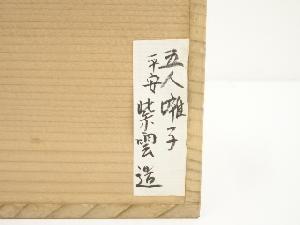 五人囃子
平安 紫雲 造